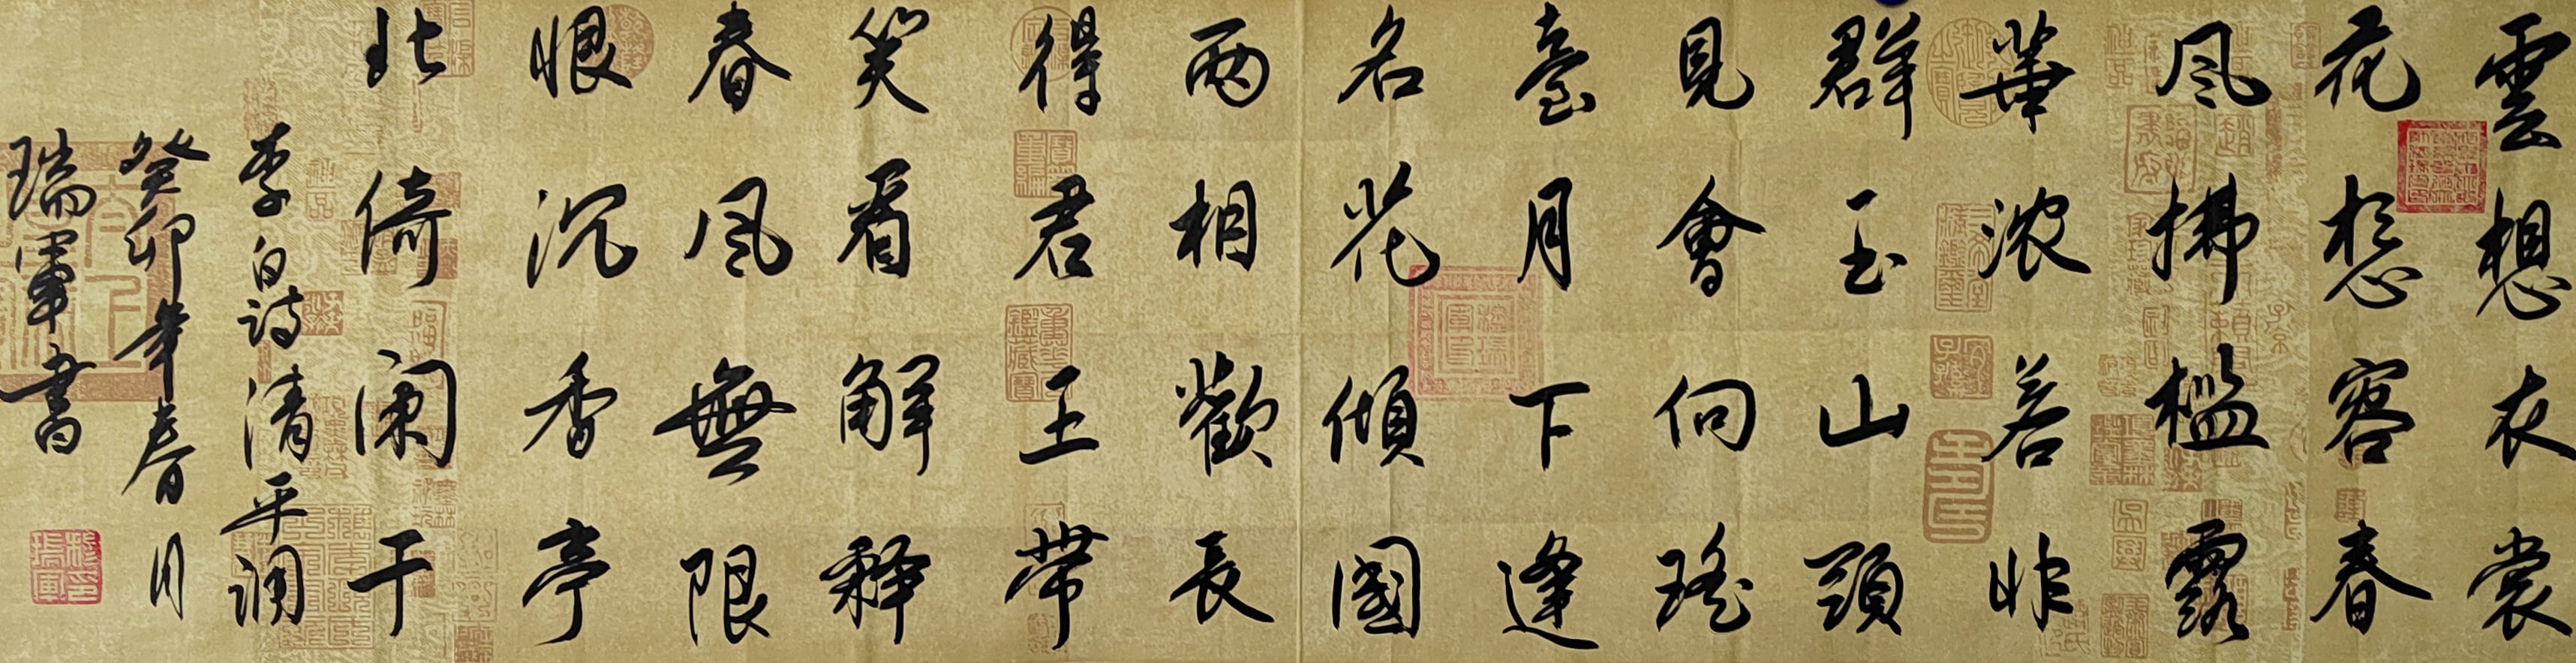 雲想衣裳
花想容春
風拂檻露
華浓若非
群玉山頭
見會向瑤
臺月下逢
名花傾國
兩相歡長
得君王帶
笑看解釋
春風無限
恨沉香亭
北倚闌干
李白詩清平調
癸卯年春月
瑞軍書